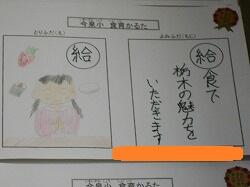 今泉小 食育かるた
とりふだ(え)
よみふだ(じ)
給
給食で
栃木の魅力を
いただきます
今泉小 食育かるた